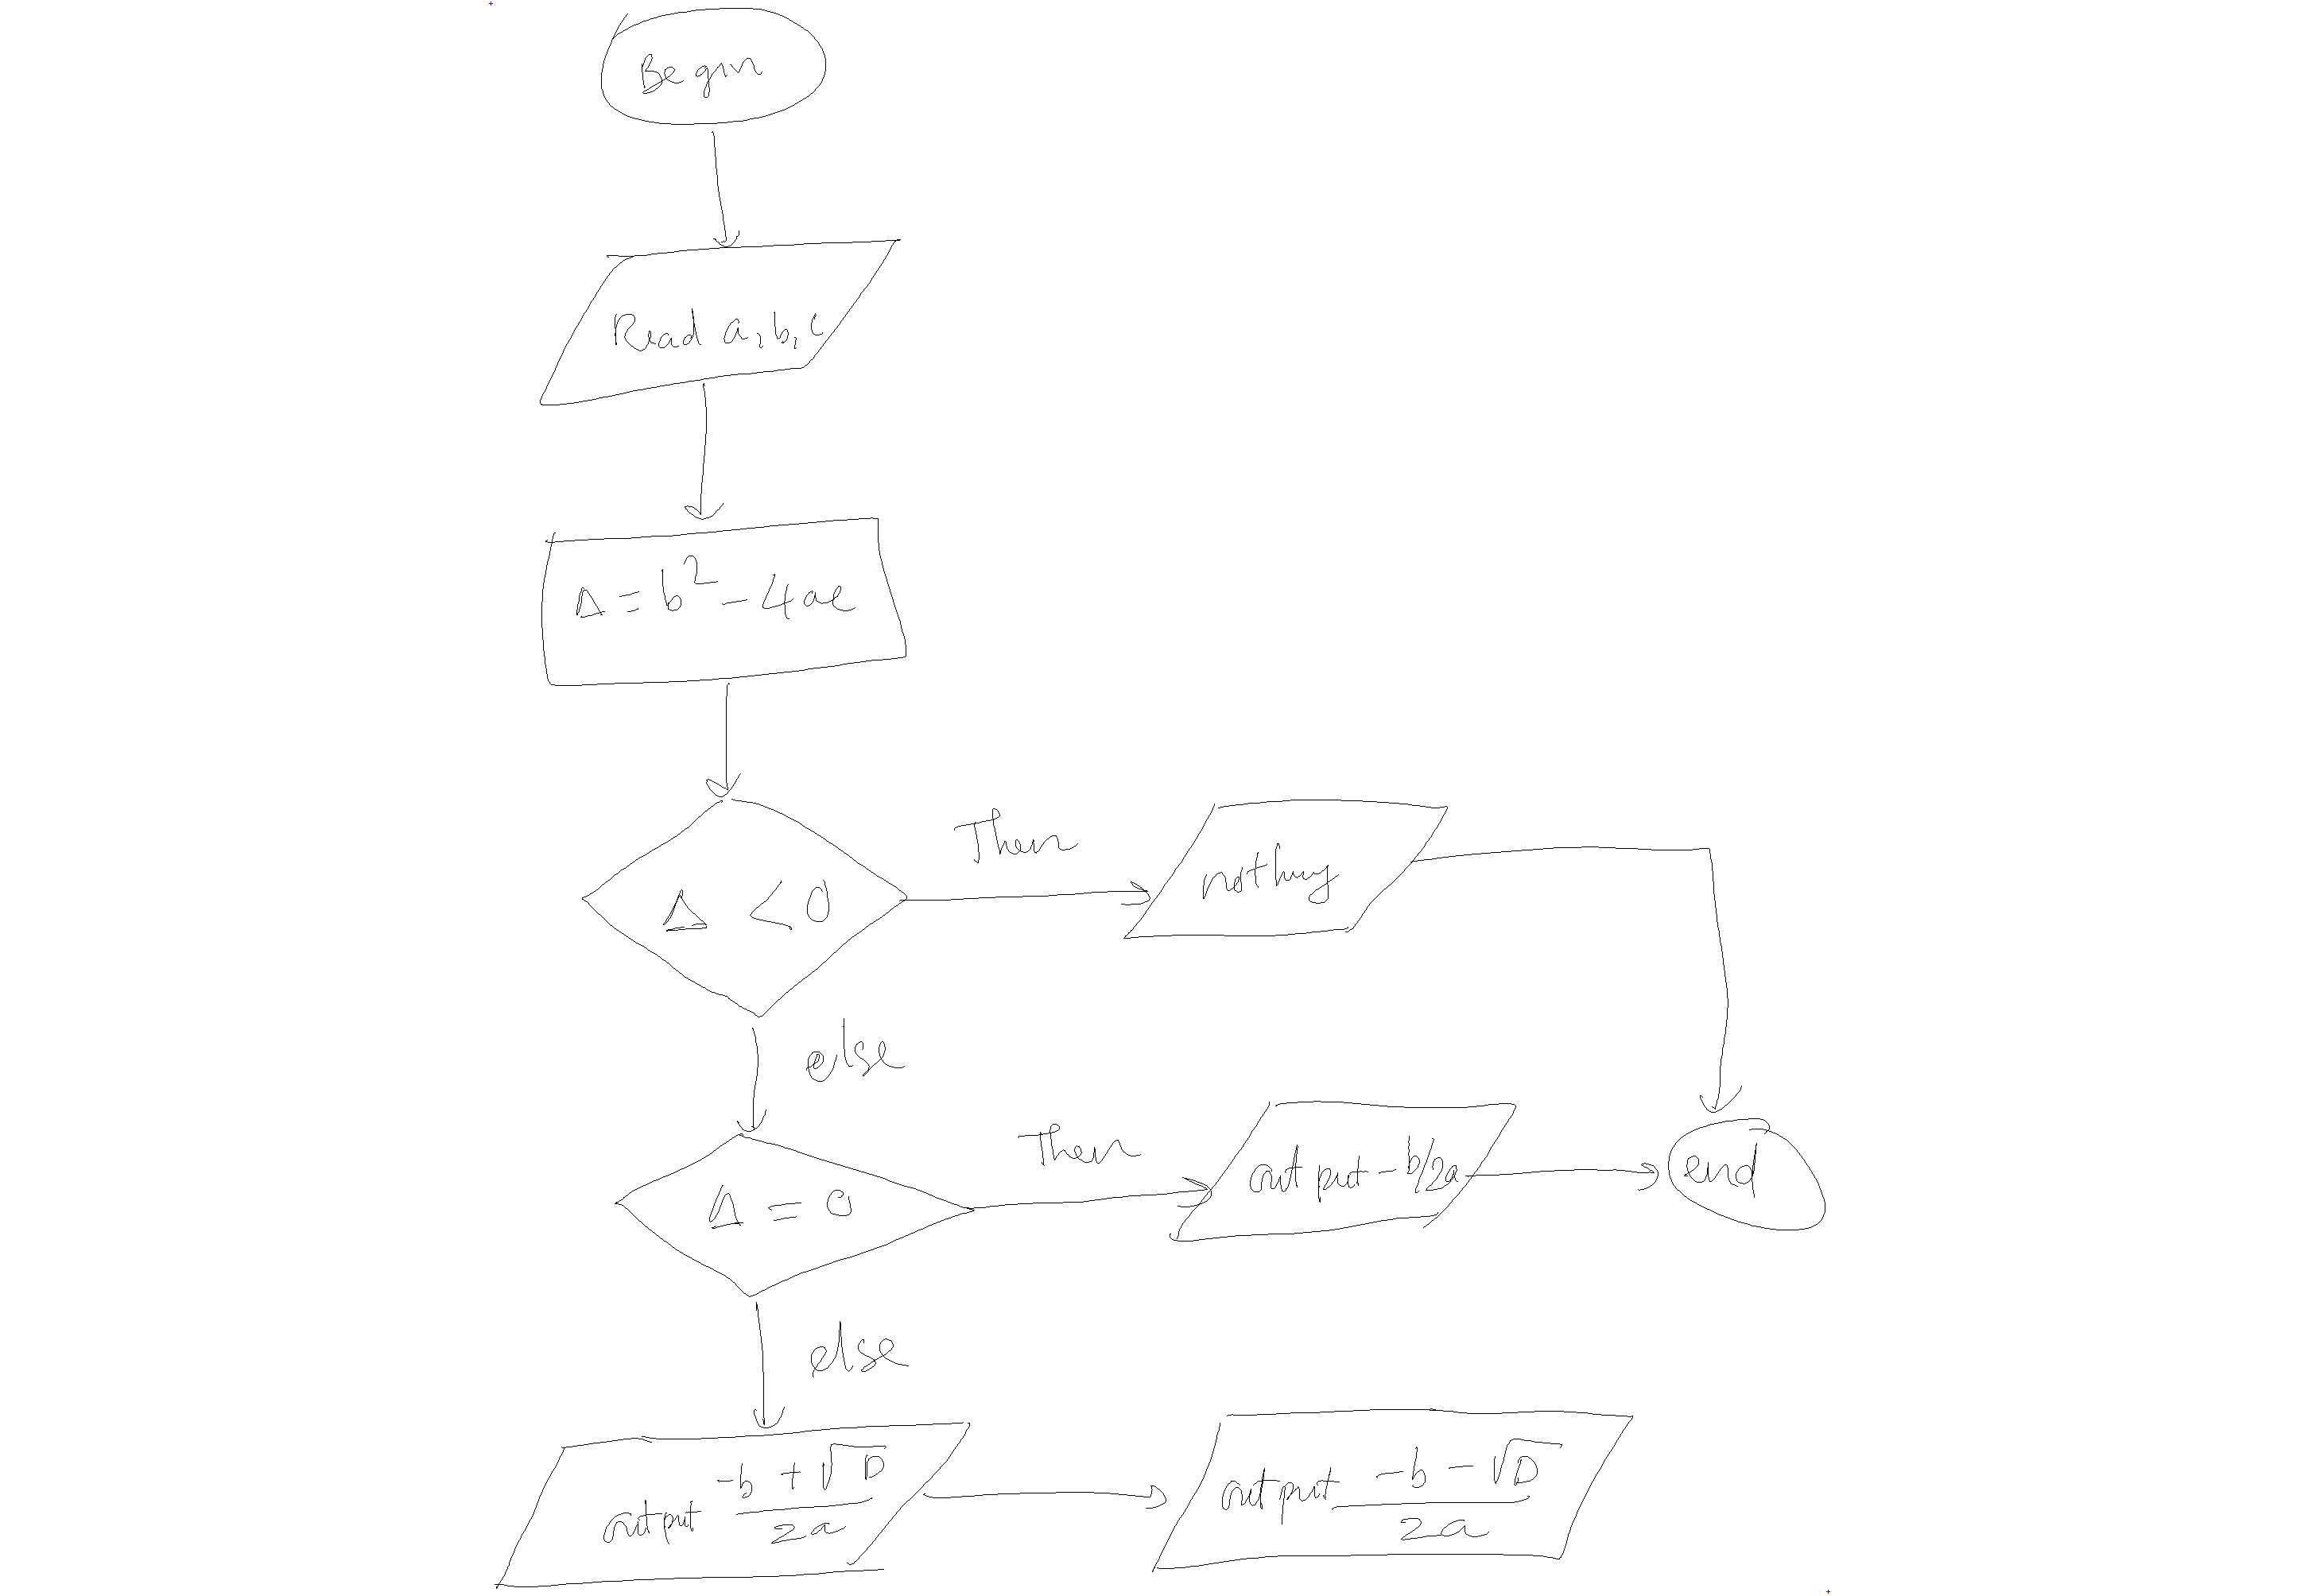 Begin
Read a, b, c
Δ = b² - 4ac
Then
nothing
Δ < 0
else
Then
output -b/2a
end
Δ = 0
else
output (-b + √D)/2a
output (-b - √D)/2a